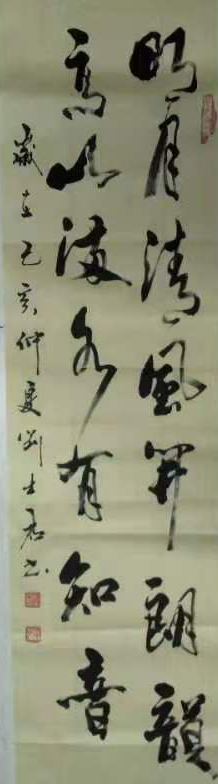 明月清風開朗韻
高山流水有知音
歲在己亥仲夏劉士君书